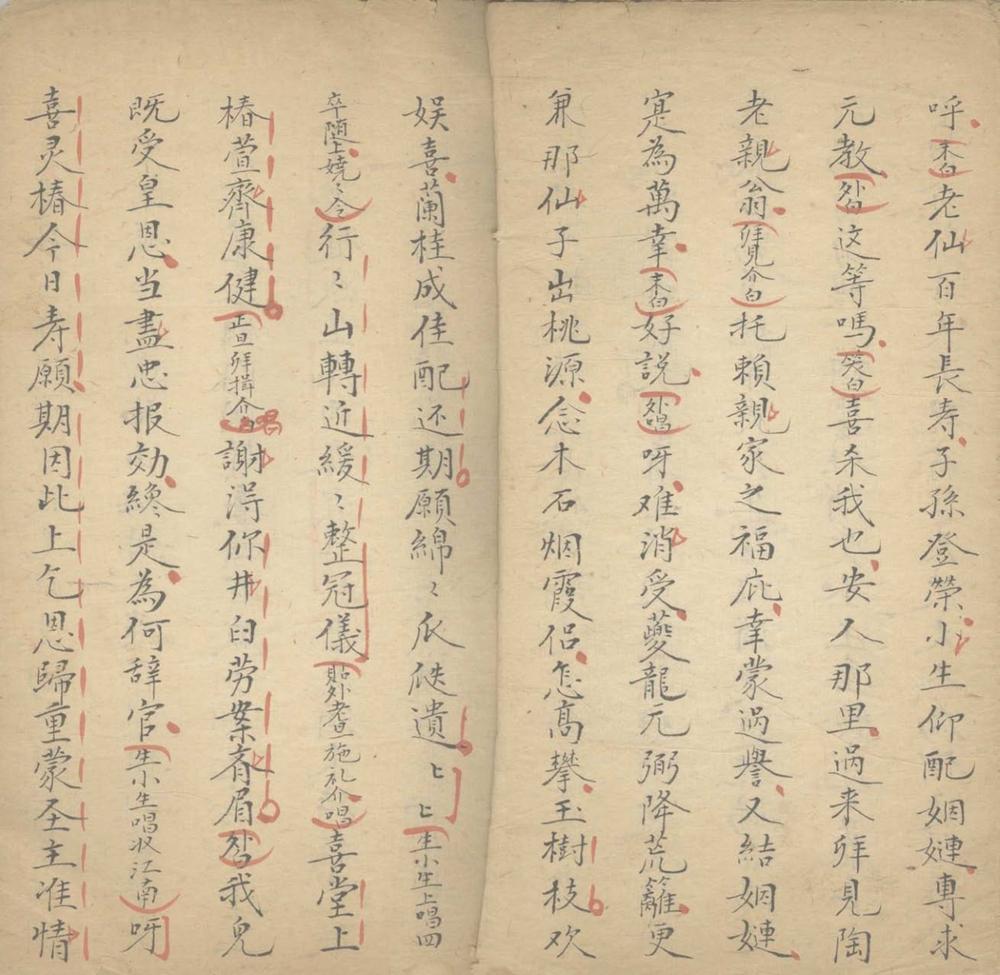 呼末白老仙百年長寿子孫登榮小生仰配姻嫤專求
元教外白这等嗎笑白喜杀我也安人那里过来拜見陶
老親翁拜見介白托賴親家之福庇幸蒙过譽又結姻嫤
寔為萬幸末白好説外唱呀难消受夔龍元弼降荒籬更
兼那仙子出桃源念木石烟霞侣怎高攀玉樹枝欢
娱喜蘭桂成佳配还期願綿〻瓜瓞遺上上生小生上唱四
行〻山轉近緩〻整冠儀貼外耆旦施礼介唱喜堂上
椿萱齊康健正旦拜揖介唱謝淂你井臼劳案齊眉外白我兒
既受皇恩当盡忠报効終是為何辞官生小生唱收江南呀
喜灵椿今日寿願期因此上乞恩歸重蒙圣主准情